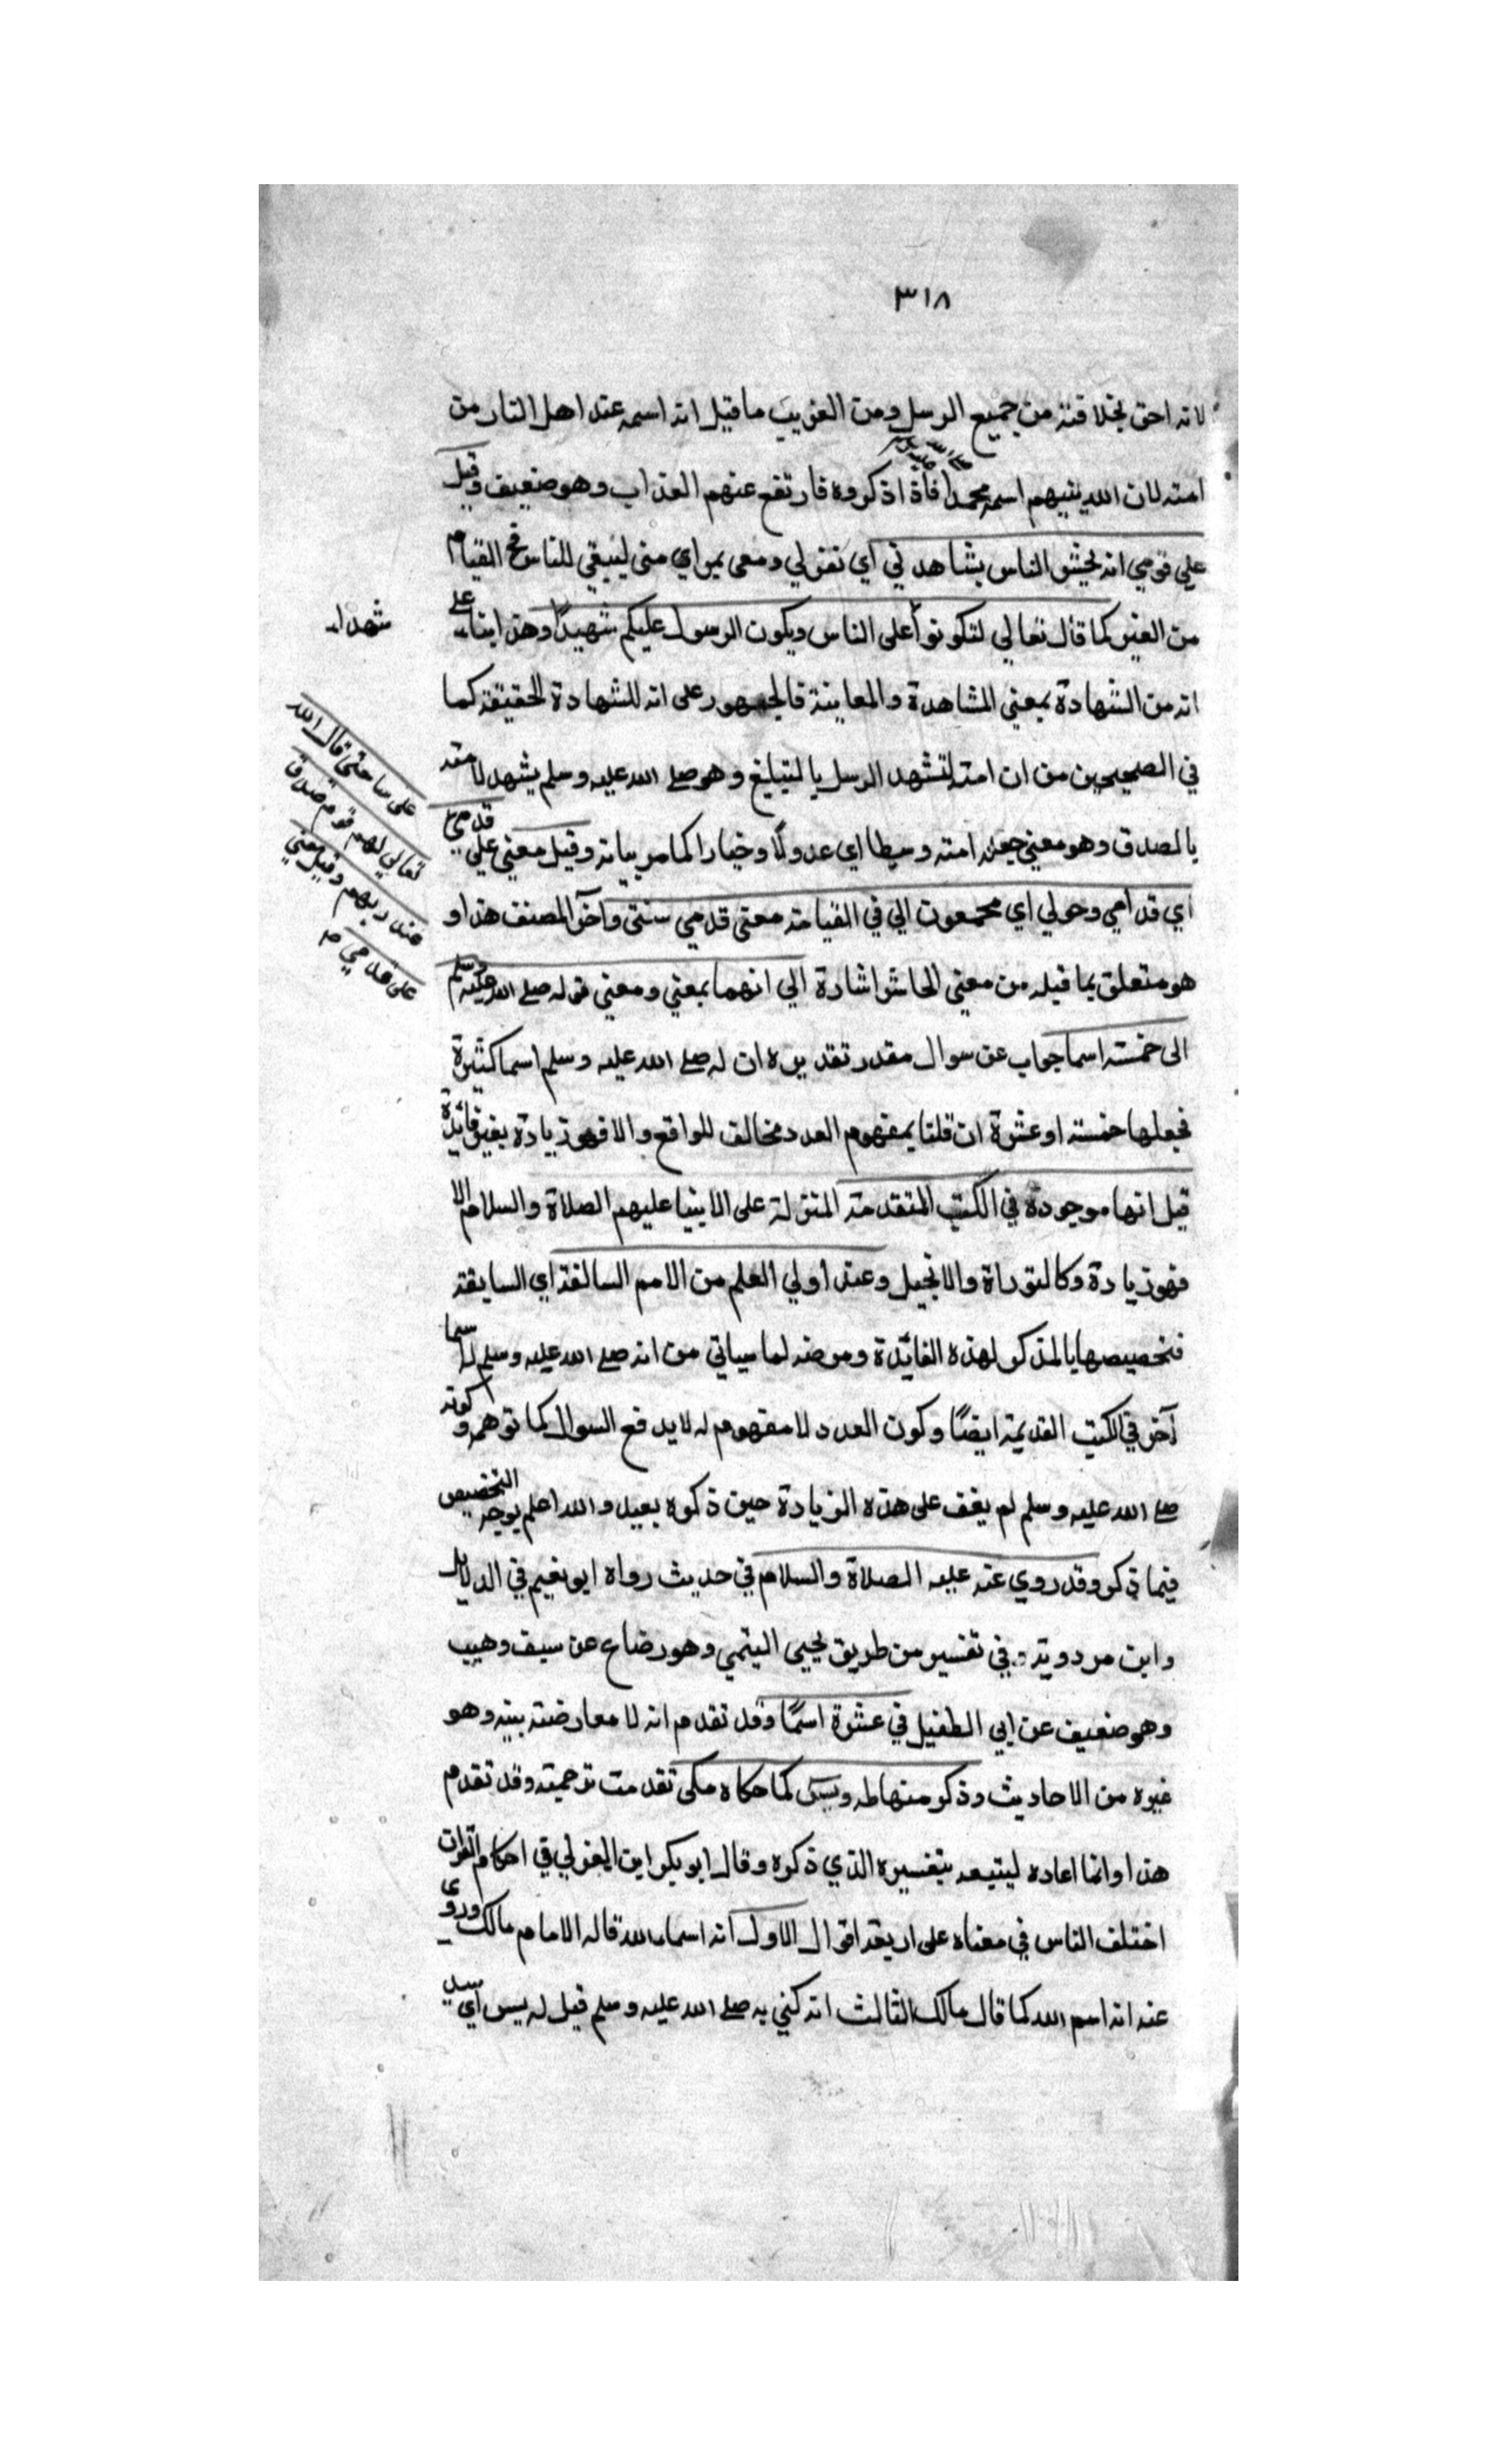 ٣١٨
لانه احق بخلافته من جميع الرسل ومن الغريب ما قيل انه اسمه عند اهل النار من
صلى الله عليه وسلم
امته لان الله ينيهم اسمه محمد فاذا ذكروه فارتفع عنهم العذاب وهو ضعيف وقيل
علي قومي انه يحشر الناس بشاهدتي أي نقولي ومعى بمراي منى ليبقي للناس في القيام
من الغير كما قال تعالي لتكونوا على الناس ويكون الرسول عليكم شهيدًا وهذا بناء على
شهداء
انه من الشهادة بمعني المشاهدة والمعاينة فالجمهور على انه للشهادة الحقيقة كما
في الصحيحين من ان امته لتشهد الرسل بالتبليغ وهو صلى الله عليه وسلم يشهد لامته
بالصدق وهو معني جعل امته وسطا اي عدولًا وخيارا كما مر بيانه وقيل معني علي قدمي
على سا حتى قال الله
تعالي لهم قدم صدق
عند ربهم وقيل معني
على قدمي
اي قدامي وحولي اي مجمعون الي في القيامة معنى قدمي سنتى وآخر المصنف هذا و
هو متعلق بما قبله من معني الحاشر اشارة الي انهما بمعني ومعني قوله صلى الله عليه وسلم
الى خمسة اسما جواب عن سوال مقدر تقديره ان له صلى الله عليه وسلم اسما كثيرة
فجعلها خمسة او عشرة ان قلنا بمفهوم العدد مخالف للواقع والا فهو زيادة بغير فائدة
قيل انها موجودة في الكتب المتقدمة المنزلة على الانبيا عليهم الصلاة والسلام الا
فهو زيادة وكالتوراة والانجيل وعند أولي العلم من الامم السالفة اي السابقة
فتخصيصها بالذكر لهذه الفائدة ومرضه لما سياتي من انه صلى الله عليه وسلم له اسما
آخر في الكتب القديمة ايضًا وكون العدد لا مفهوم له لا يدفع السوال كما توهم وكونه
صلى الله عليه وسلم لم يقف على هذه الزيادة حين ذكره بعيد والله اعلم بوجه التخصيص
فيما ذكر وقد روي عنه عليه الصلاة والسلام في حديث رواه ابو نعيم في الدلايل
وابن مردويه في تفسير من طريق يحيى التيمي وهو رضاع عن سيف وهيب
وهو ضعيف عن ابي الطفيل في عشرة اسمًا وقد تقدم انه لا معارضة بينه وهو
غيره من الاحاديث وذكر منها طه ويس كما حكاه مكى تقدمت ترجمته وقد تقدم
هذا وانما اعاده ليتبعه بتفسيره الذي ذكره وقال ابو بكر ابن العزلي في احكام القران
اختلف الناس في معناه على اربعة اقوال الاول انه اسماء الله قاله الامام مالك وروى
عنه انه اسم الله كما قال مالك الثالث انه كني به صلى الله عليه وسلم قيل له يس أي سيد